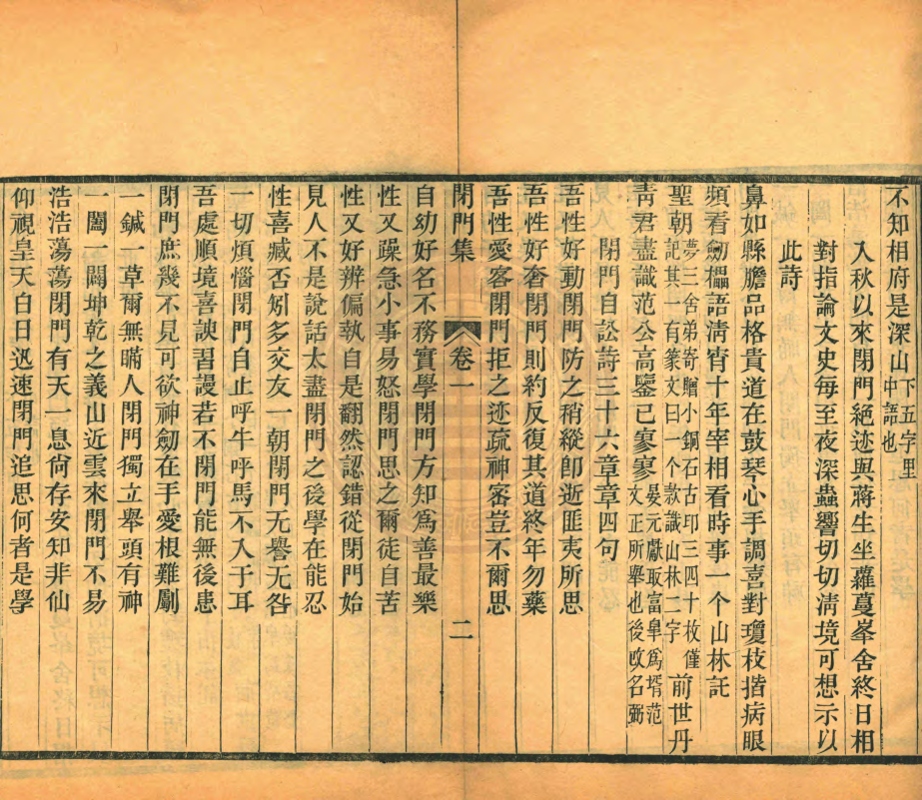 不知相府是深山下五字里中語也
入秋以來閉門絕迹與蔣生坐蘿蔓峯舍終日相
對指論文史每至夜深蟲響切切淸境可想示以
此詩
鼻如縣膽品格貴道在鼓琴心手調喜對瓊枝揩病眼
頻看劒櫑語淸宵十年宰相看時事一个山林託
聖朝夢三舍弟寄贈小銅石古印三四十枚僅記其一有篆文曰一个款識山林二字前世丹
靑君盡識范公高鑒已寥寥晏元獻取富臯爲壻范文正所舉也後改名弼
閉門自訟詩三十六章章四句
吾性好動閉門防之稍縱卽逝匪夷所思
吾性好奢閉門則約反復其道終年勿藥
吾性愛客閉門拒之迹疏神密豈不爾思
閉門集
卷一
二
自幼好名不務實學閉門方知爲善最樂
性又躁急小事易怒閉門思之爾徒自苦
性又好辨偏執自是翻然認錯從閉門始
見人不是說話太盡閉門之後學在能忍
性喜臧否矧多交友一朝閉門无譽无咎
一切煩惱閉門自止呼牛呼馬不入于耳
吾處順境喜諛習謾若不閉門能無後患
閉門庶幾不見可欲神劒在手愛根難劚
一鍼一草爾無瞞人閉門獨立舉頭有神
一闔一闢坤乾之義山近雲來閉門不易
浩浩蕩蕩閉門有天一息尙存安知非仙
仰視皇天白日迅速閉門追思何者是學